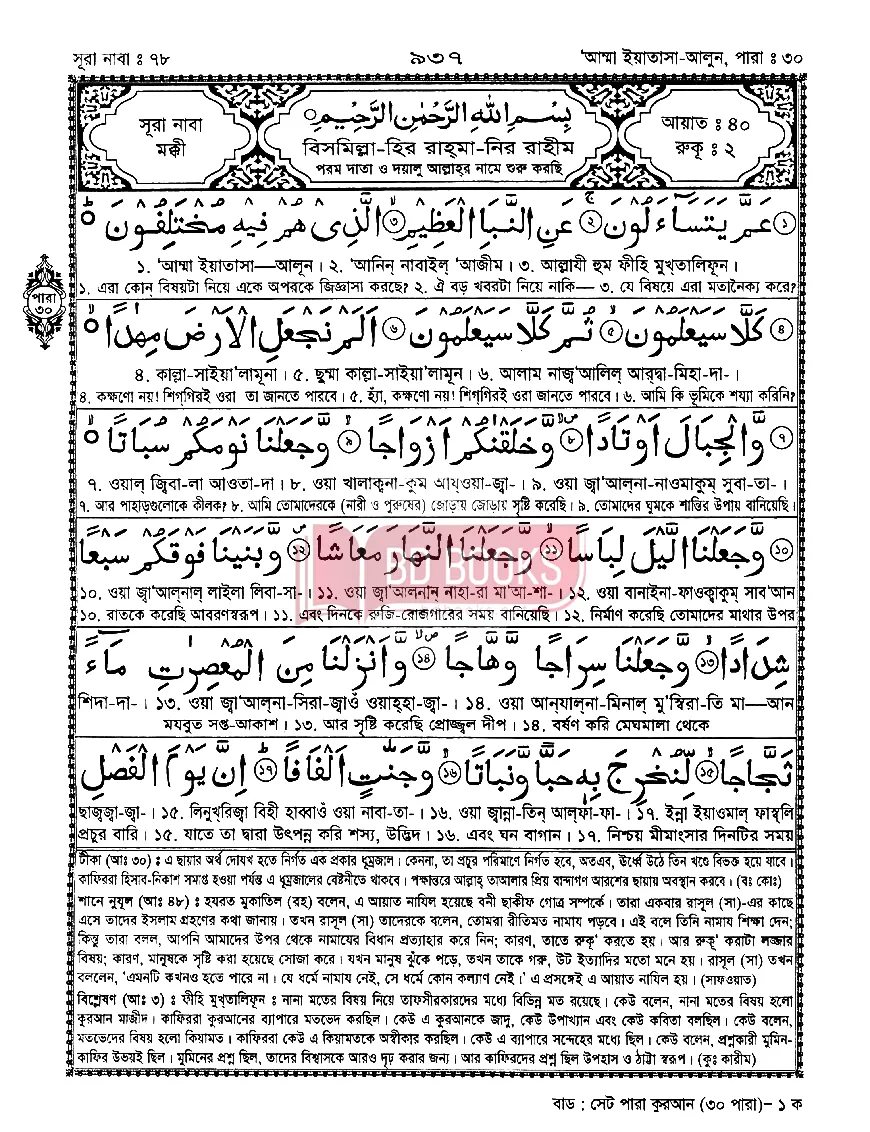 সূরা নাবা ঃ ৭৮ ৯৩৭ 'আম্মা ইয়াতাসা-আলূন, পারা ঃ ৩০
সূরা নাবা
মক্কী
بِسْمِ اللهِ الرَّحْمٰنِ الرَّحِيْمِ
বিসমিল্লা-হির রাহ্মা-নির রাহীম
পরম দাতা ও দয়ালু আল্লাহর নামে শুরু করছি
আয়াত ঃ ৪০
রুকূ ঃ ২
পারা
৩০
عَمَّ يَتَسَآءَلُوْنَ ۚ ﴿১﴾ عَنِ النَّبَاِ الْعَظِيْمِ ﴿২﴾ الَّذِىْ هُمْ فِيْهِ مُخْتَلِفُوْنَ ؕ ﴿৩﴾
১. 'আম্মা ইয়াতাসা—আলূন। ২. 'আনিন্ নাবাইল্ 'আজীম। ৩. আল্লাযী হুম ফীহি মুখ্তালিফূন।
১. এরা কোন্ বিষয়টা নিয়ে একে অপরকে জিজ্ঞাসা করছে? ২. ঐ বড় খবরটা নিয়ে নাকি— ৩. যে বিষয়ে এরা মতানৈক্য করে?
﴿৪﴾ كَلَّا سَيَعْلَمُوْنَ ﴿৫﴾ ثُمَّ كَلَّا سَيَعْلَمُوْنَ ﴿৬﴾ اَلَمْ نَجْعَلِ الْاَرْضَ مِهٰدًا
৪. কাল্লা-সাইয়া'লামূনা। ৫. ছুম্মা কাল্লা-সাইয়া'লামূন। ৬. আলাম নাজ্'আলিল্ আর্দ্বা-মিহা-দা-।
৪. কক্ষণো নয়! শিগ্গিরই ওরা তা জানতে পারবে। ৫. হ্যাঁ, কক্ষণো নয়! শিগ্গিরই ওরা জানতে পারবে। ৬. আমি কি ভূমিকে শয্যা করিনি?
﴿৭﴾ وَّالْجِبَالَ اَوْتَادًا ﴿৮﴾ وَّخَلَقْنٰكُمْ اَزْوَاجًا ﴿৯﴾ وَّجَعَلْنَا نَوْمَكُمْ سُبَاتًا
৭. ওয়াল্ জ্বিবা-লা আওতা-দা। ৮. ওয়া খালাক্বনা-কুম আয্ওয়া-জ্বা-। ৯. ওয়া জ্বা'আল্না-নাওমাকুম্ সুবা-তা-।
৭. আর পাহাড়গুলোকে কীলক? ৮. আমি তোমাদেরকে (নারী ও পুরুষের) জোড়ায় জোড়ায় সৃষ্টি করেছি। ৯. তোমাদের ঘুমকে শান্তির উপায় বানিয়েছি।
﴿১০﴾ وَّجَعَلْنَا الَّيْلَ لِبَاسًا ﴿১১﴾ وَّجَعَلْنَا النَّهَارَ مَعَاشًا ﴿১২﴾ وَّبَنَيْنَا فَوْقَكُمْ سَبْعًا
BD BOOKS
১০. ওয়া জ্বা'আল্নাল্ লাইলা লিবা-সা-। ১১. ওয়া জ্বা'আলনান্ নাহা-রা মা'আ-শা-। ১২. ওয়া বানাইনা-ফাওক্বাকুম্ সাব'আন
১০. রাতকে করেছি আবরণস্বরূপ। ১১. এবং দিনকে রুজি-রোজগারের সময় বানিয়েছি। ১২. নির্মাণ করেছি তোমাদের মাথার উপর
شِدَادًا ﴿১৩﴾ وَّجَعَلْنَا سِرَاجًا وَّهَّاجًا ﴿১৪﴾ وَّاَنْزَلْنَا مِنَ الْمُعْصِرٰتِ مَآءً
শিদা-দা-। ১৩. ওয়া জ্বা'আল্না-সিরা-জ্বাওঁ ওয়াহ্হা-জ্বা-। ১৪. ওয়া আন্যাল্না-মিনাল্ মু'ছিরা-তি মা—আন
মযবুত সপ্ত-আকাশ। ১৩. আর সৃষ্টি করেছি প্রোজ্জ্বল দীপ। ১৪. বর্ষণ করি মেঘমালা থেকে
ثَجَّاجًا ﴿১৫﴾ لِّنُخْرِجَ بِهٖ حَبًّا وَّنَبَاتًا ﴿১৬﴾ وَّجَنّٰتٍ اَلْفَافًا ؕ ﴿১৭﴾ اِنَّ يَوْمَ الْفَصْلِ
ছাজ্জ্বা-জ্বা-। ১৫. লিনুখরিজ্বা বিহী হাব্বাওঁ ওয়া নাবা-তা-। ১৬. ওয়া জ্বান্না-তিন্ আল্ফা-ফা-। ১৭. ইন্না ইয়াওমাল্ ফাছ্বলি
প্রচুর বারি। ১৫. যাতে তা দ্বারা উৎপন্ন করি শস্য, উদ্ভিদ। ১৬. এবং ঘন বাগান। ১৭. নিশ্চয় মীমাংসার দিনটির সময়
টীকা (আঃ ৩০) ঃ এ ছায়ার অর্থ দোযখ হতে নির্গত এক প্রকার ধূম্রজাল। কেননা, তা প্রচুর পরিমাণে নির্গত হবে, অতএব, উর্ধ্বে উঠে তিন খণ্ডে বিভক্ত হয়ে যাবে।
কাফিররা হিসাব-নিকাশ সমাপ্ত হওয়া পর্যন্ত এ ধূম্রজালের বেষ্টনীতে থাকবে। পক্ষান্তরে আল্লাহ্ তাআলার প্রিয় বান্দাগণ আরশের ছায়ায় অবস্থান করবে। (বঃ কোঃ)
শানে নুযূল (আঃ ৪৮) ঃ হযরত মুকাতিল (রহ) বলেন, এ আয়াত নাযিল হয়েছে বনী ছাকীফ গোত্র সম্পর্কে। তারা একবার রাসূল (সা)-এর কাছে
এসে তাদের ইসলাম গ্রহণের কথা জানায়। তখন রাসূল (সা) তাদেরকে বলেন, তোমরা রীতিমত নামায পড়বে। এই বলে তিনি নামায শিক্ষা দেন;
কিন্তু তারা বলল, আপনি আমাদের উপর থেকে নামাযের বিধান প্রত্যাহার করে নিন; কারণ, তাতে রুকূ' করতে হয়। আর রুকূ' করাটা লজ্জার
বিষয়; কারণ, মানুষকে সৃষ্টি করা হয়েছে সোজা করে। যখন মানুষ ঝুঁকে পড়ে, তখন তাকে গরু, উট ইত্যাদির মতো মনে হয়। রাসূল (সা) তখন
বললেন, 'এমনটি কখনও হতে পারে না। যে ধর্মে নামায নেই, সে ধর্মে কোন কল্যাণ নেই।' এ প্রসঙ্গেই এ আয়াত নাযিল হয়। (সাফওয়াত)
বিশ্লেষণ (আঃ ৩) ঃ ফীহি মুখ্তালিফূন ঃ নানা মতের বিষয় নিয়ে তাফসীরকারদের মধ্যে বিভিন্ন মত রয়েছে। কেউ বলেন, নানা মতের বিষয় হলো
কুরআন মাজীদ। কাফিররা কুরআনের ব্যাপারে মতভেদ করছিল। কেউ এ কুরআনকে জাদু, কেউ উপাখ্যান এবং কেউ কবিতা বলছিল। কেউ বলেন,
মতভেদের বিষয় হলো কিয়ামত। কাফিররা কেউ এ কিয়ামতকে অস্বীকার করছিল। কেউ এ ব্যাপারে সন্দেহের মধ্যে ছিল। কেউ বলেন, প্রশ্নকারী মুমিন-
কাফির উভয়ই ছিল। মুমিনের প্রশ্ন ছিল, তাদের বিশ্বাসকে আরও দৃঢ় করার জন্য। আর কাফিরদের প্রশ্ন ছিল উপহাস ও ঠাট্টা স্বরূপ। (কুঃ কারীম)
বাড : সেট পারা কুরআন (৩০ পারা)– ১ ক